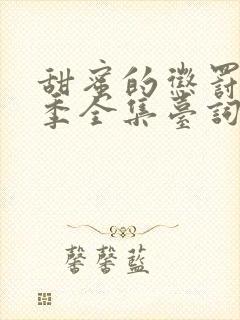 甜蜜的懲罰
季全集臺詞
馨馨藍